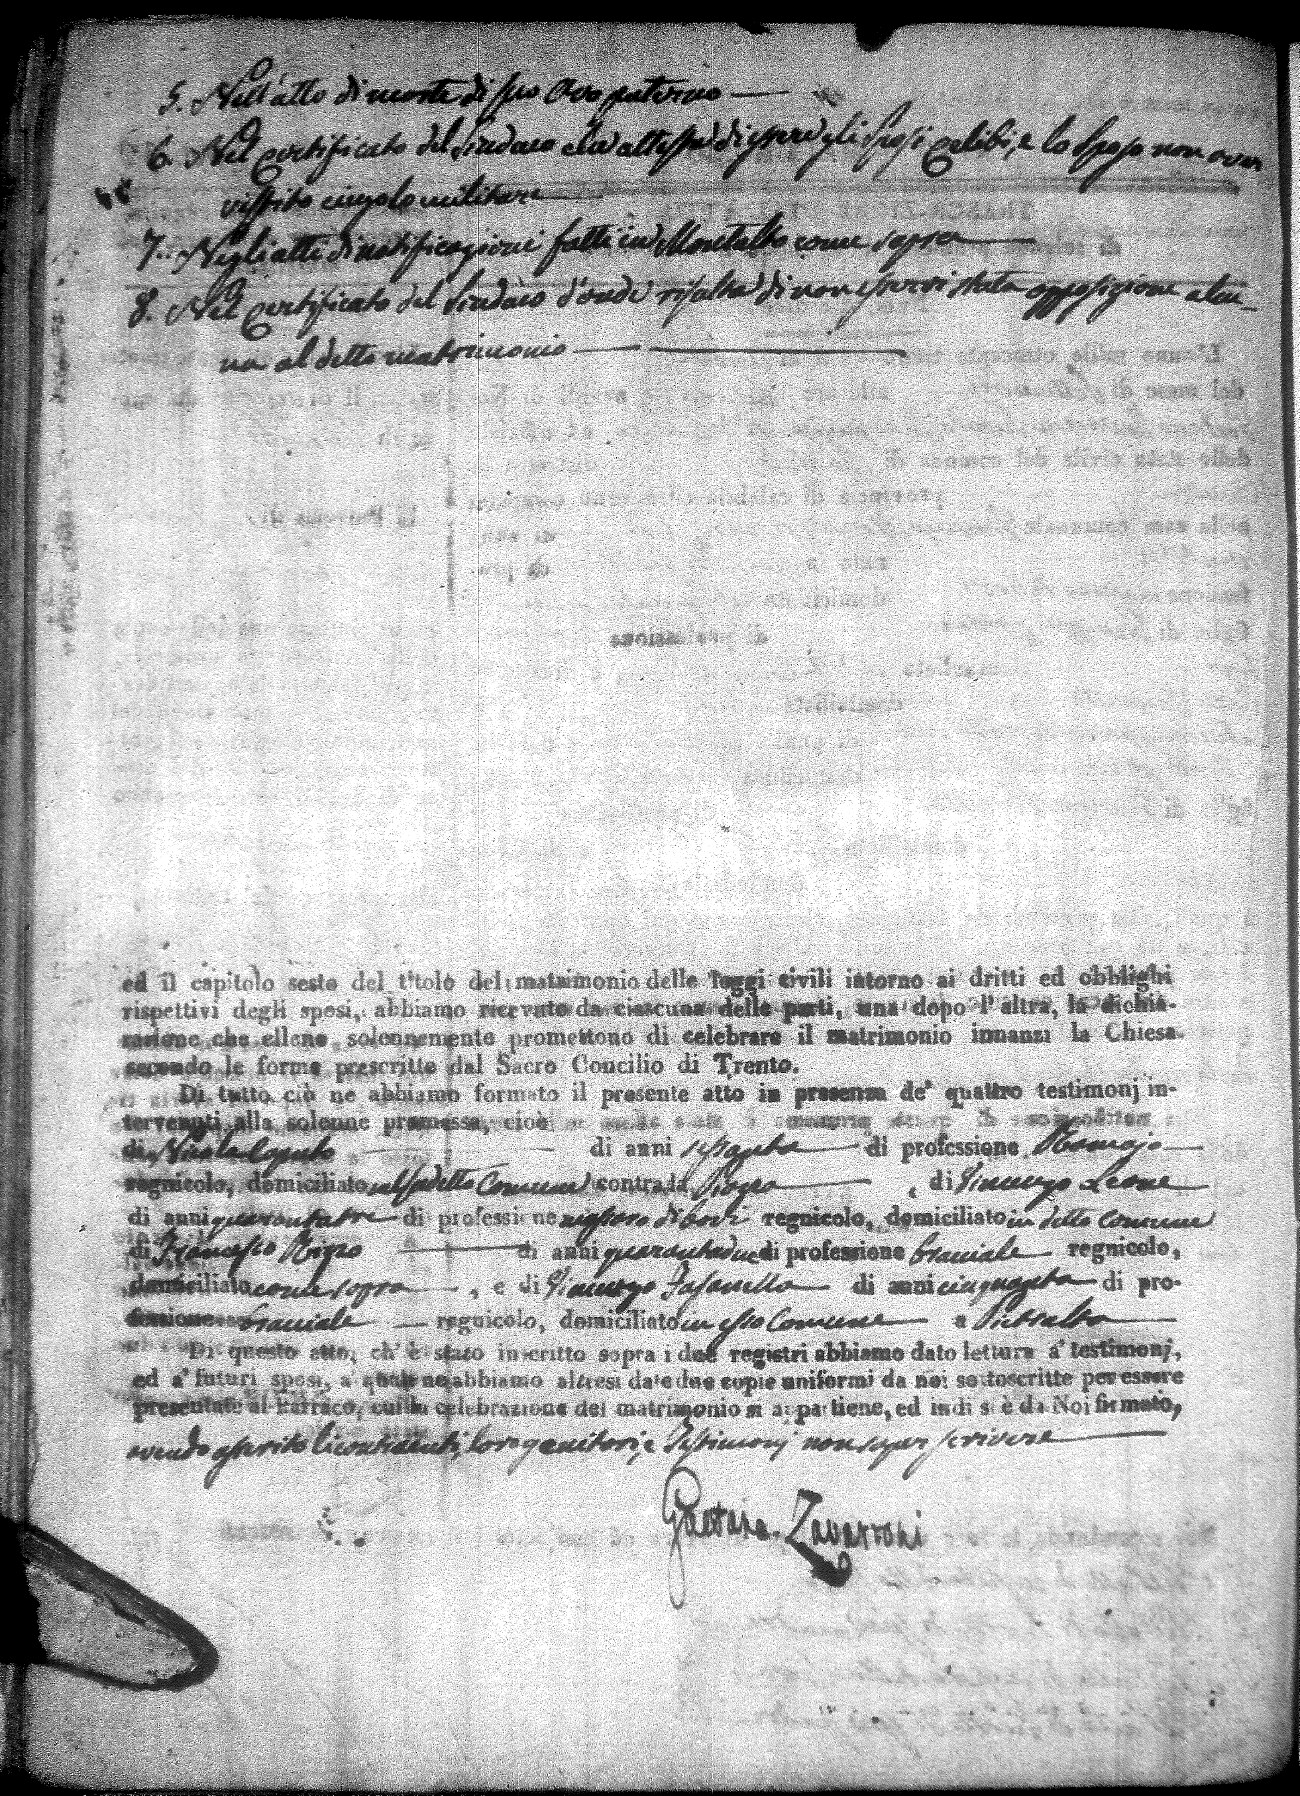 5. Nell'atto di morte di suo Avo paterno
6. Nel certificato del Sindaco che attesta di essere gli sposi celibi, e lo sposo non aver
vestito cingolo militare
7. Negli atti di notificazioni fatti in Montalto come sopra
8. Nel certificato del Sindaco d'onde risulta di non esservi stata opposizione alcu-
na al detto matrimonio
ed il capitolo sesto del titolo del matrimonio delle leggi civili intorno ai dritti ed obblighi
rispettivi degli sposi, abbiamo ricevuto da ciascuna delle parti, una dopo l'altra, la dichia-
razione che elleno solennemente promettono di celebrare il matrimonio innanzi la Chiesa
secondo le forme prescritte dal Sacro Concilio di Trento.
Di tutto ciò ne abbiamo formato il presente atto in presenza de' quattro testimonj in-
tervenuti alla solenne promessa, cioè
di Nicola Caputo di anni sessanta di professione
regnicolo, domiciliato nel suddetto Comune contrada , di Vincenzo Leone
di anni quarantatre di professione di bovi regnicolo, domiciliato in detto Comune
di Francesco di anni quarantadue di professione braciale regnicolo,
domiciliato come sopra , e di Vincenzo Fasanella di anni cinquanta di pro-
fessione braciale regnicolo, domiciliato in esso Comune a Pietralta
Di questo atto, ch'è stato inscritto sopra i due registri abbiamo dato lettura a' testimonj,
ed a' futuri sposi, a' quali ne abbiamo altresì date due copie uniformi da noi sottoscritte per essere
presentate al Parroco, cui la celebrazione del matrimonio si appartiene, ed indi si è da Noi firmato,
avendo asserito li contraenti, loro genitori, e Testimonj non saper scrivere
Gaetano Zavarroni